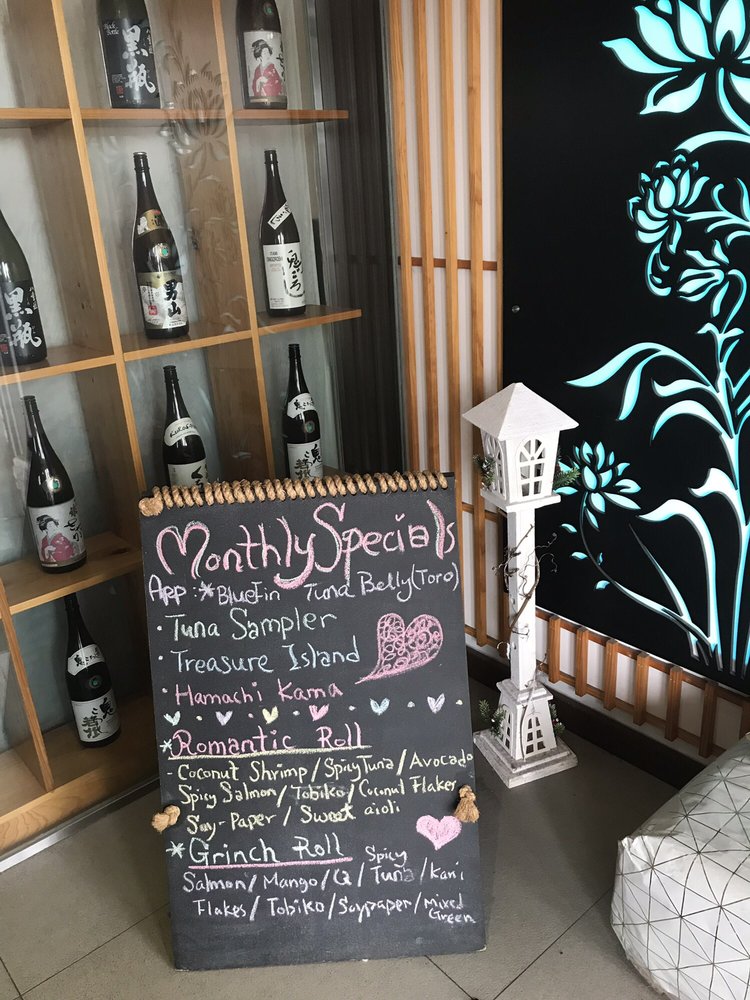 黒瓶
黒瓶
男山
鬼ころし
KUROS
鬼ころし
鬼ころし
Monthly Specials
App: * BlueFin Tuna Belly (Toro)
· Tuna Sampler
· Treasure Island
· Hamachi Kama
* Romantic Roll
- Coconut Shrimp / Spicy Tuna / Avocado
Spicy Salmon / Tobiko / Coconut Flaker
Soy-Paper / Sweet aioli
* Grinch Roll
Salmon / Mango / Q / Spicy Tuna / Kani
Flakes / Tobiko / Soypaper / Mixed Green